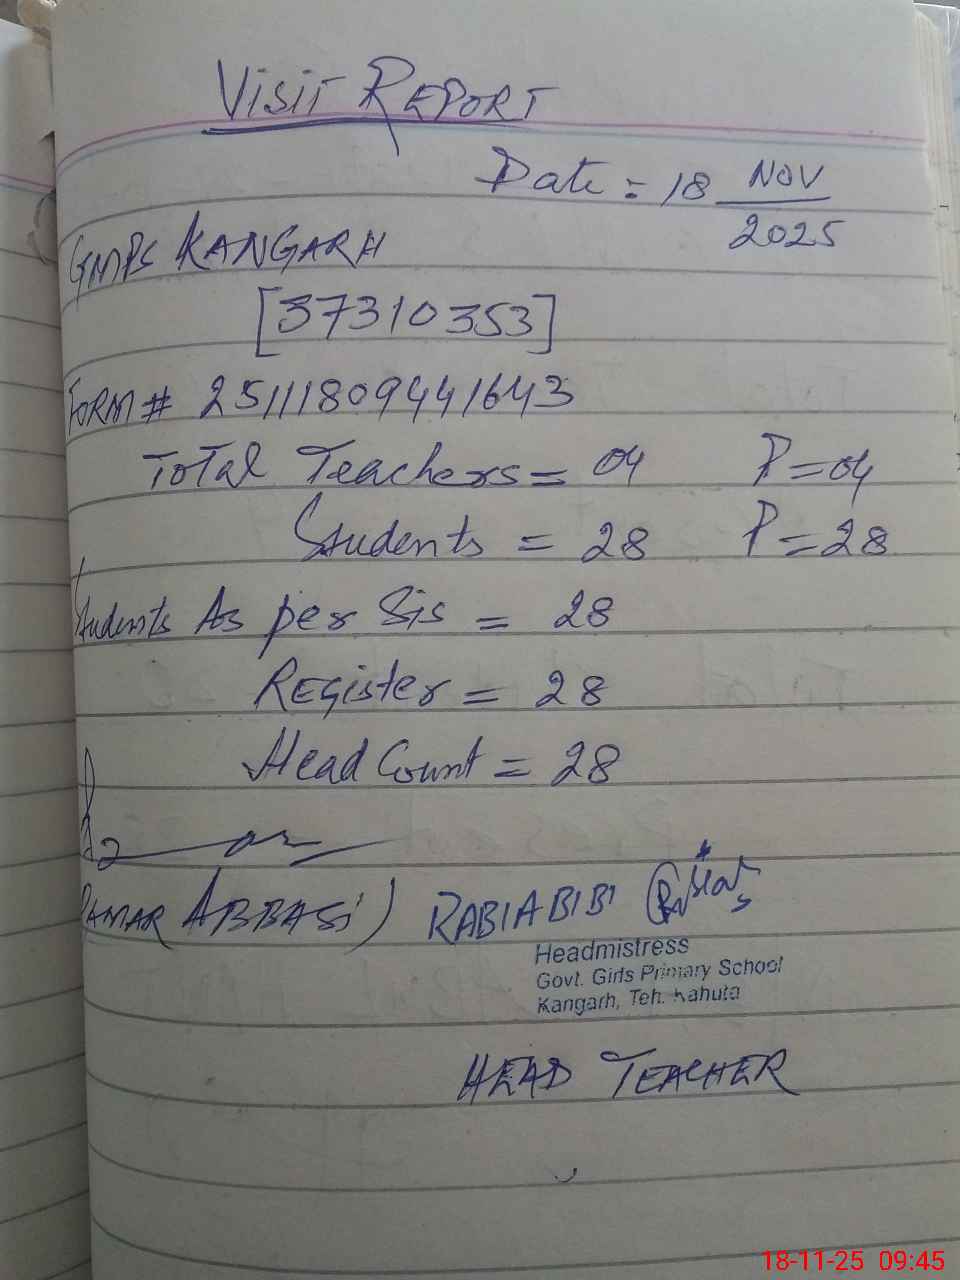 Visit REPORT
Date = 18 NOV
2025
GMPS KANGARH
[37310353]
FORM # 25111809441643
Total Teachers = 04 P = 04
Students = 28 P = 28
Students As per Sis = 28
REgister = 28
Head Count = 28
ABBASi) RABIA BIBI
Headmistress
Govt. Girls Primary School
Kangarh, Teh. Kahuta
HEAD TEACHER
18-11-25 09:45